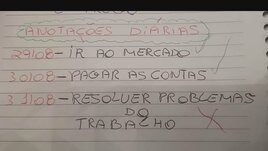 ANOTAÇÕES DIÁRIAS
29/08-IR AO MERCADO
30/08-PAGAR AS CONTAS
31/08-RESOLVER PROBLEMAS
DO
TRABALHO